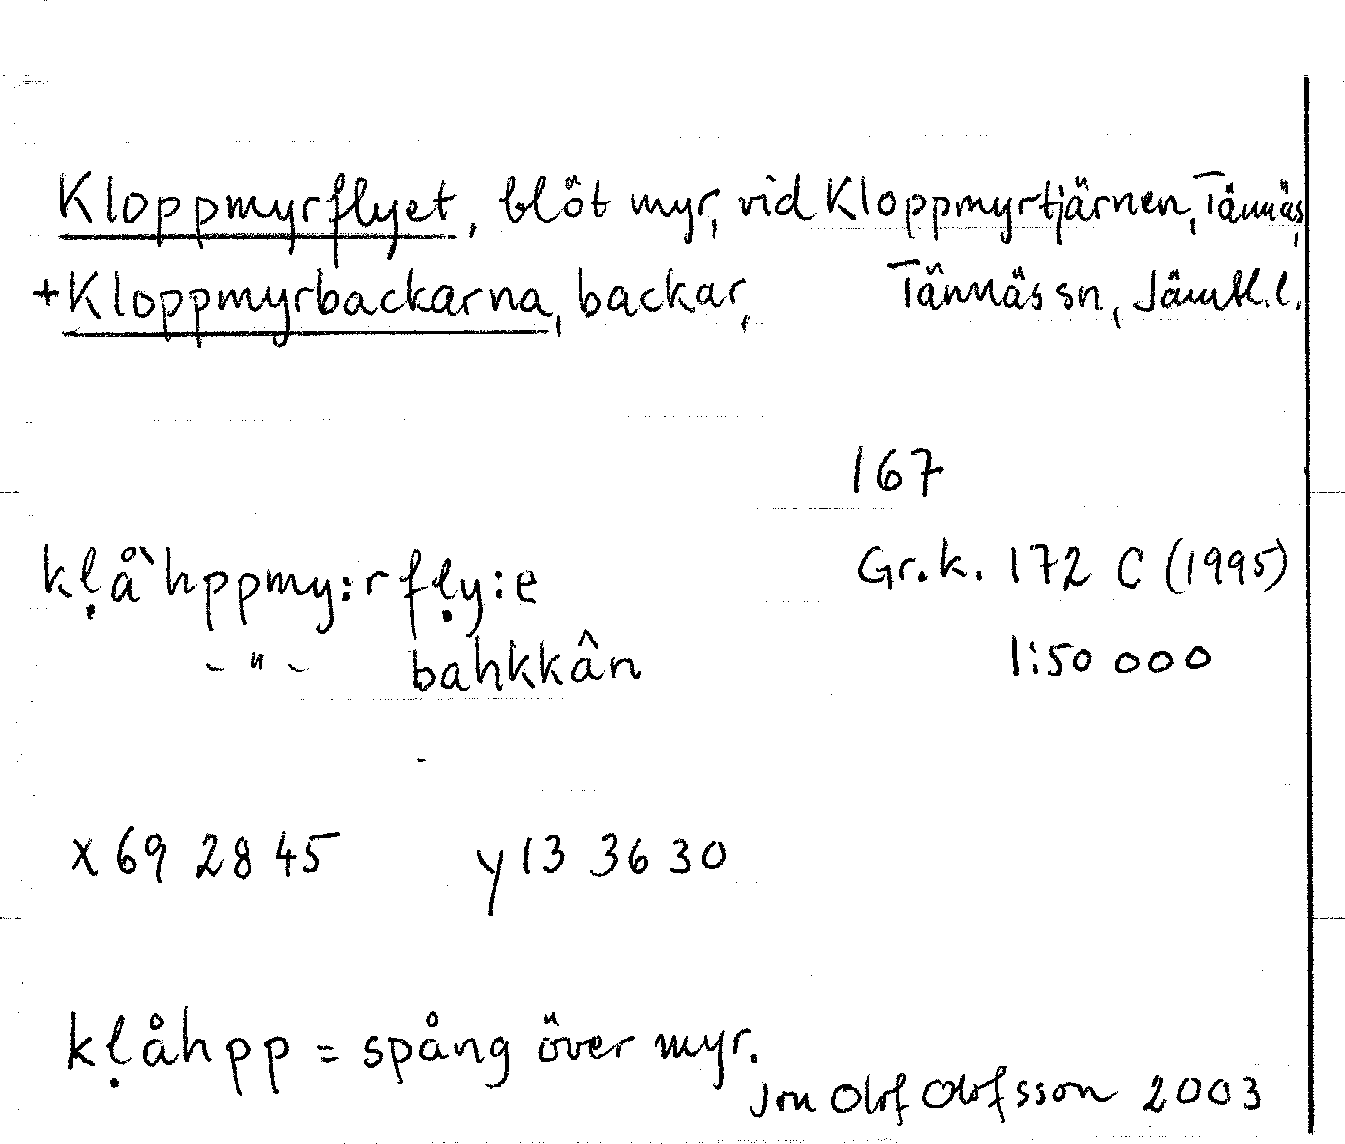 Kloppmyrflyet, blöt myr, vid Kloppmyrtjärnen, Tännäs,
+Kloppmyrbackarna, backar, Tännäs sn, Jämtl.l.
167
kḷå`hppmy:rfḷy:e Gr.k. 172 C (1995)
-"- bahkkân 1:50 000
x 69 28 45 y 13 36 30
kḷåhpp = spång över myr.
Jon Olof Olofsson 2003